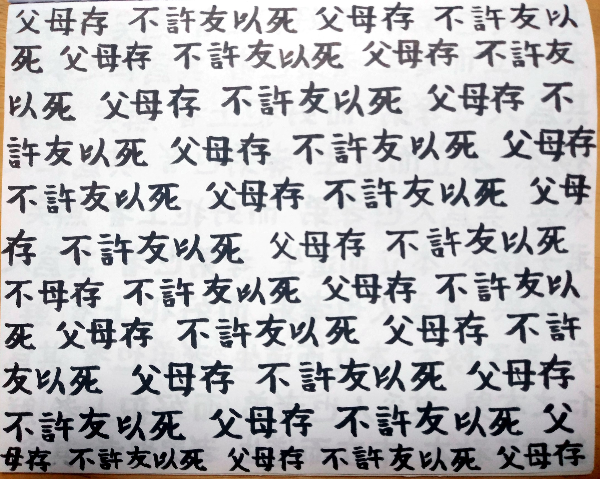 父母存 不許友以死 父母存 不許友以
死 父母存 不許友以死 父母存 不許友
以死 父母存 不許友以死 父母存 不
許友以死 父母存 不許友以死 父母存
不許友以死 父母存 不許友以死 父母
存 不許友以死 父母存 不許友以死
不母存 不許友以死 父母存 不許友以
死 父母存 不許友以死 父母存 不許
友以死 父母存 不許友以死 父母存
不許友以死 父母存 不許友以死 父
母存 不許友以死 父母存 不許友以死 父母存